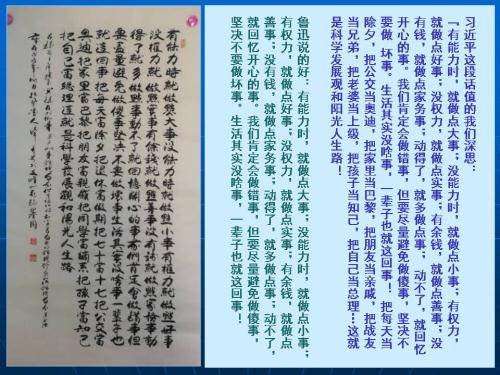 习近平这段话值的我们深思：
“有能力时，就做点大事；没能力时，就做点小事；有权力，
就做点好事；没权力，就做点实事；有余钱，就做点善事；没
有钱，就做点家务事；动得了，就多做点事； 动不了，就回忆
开心的事。我们肯定会做错事，但要尽量避免做傻事，坚决不
要做 坏事。生活其实没啥事，一辈子也就这回事！ 把每天当
除夕，把公交当奥迪，把家里当巴黎，把朋友当亲戚，把战友
当兄弟，把老婆当上级，把孩子当知己，把自己当总理…这就
是科学发展观和阳光人生路！
鲁迅说的好：有能力时，就做点大事；没能力时，就做点小事；
有权力，就做点好事；没权力，就做点实事；有余钱，就做点
善事；没有钱，就做点家务事；动得了，就多做点事；动不了，
就回忆开心的事。我们肯定会做错事，但要尽量避免做傻事，
坚决不要做坏事。生活其实没啥事，一辈子也就这回事！
有能力时就做点大事没能力时就做点小事有权力就做点好事
没权力就做点实事有余钱就做点善事没有钱就做点家务事动
得了就多做点事动不了就回忆开心的事我们肯定会做错事但
要尽量避免做傻事坚决不要做坏事生活其实没啥事一辈子也
就这回事把每天当除夕把退休当假期把七十当十七把公交当
奥迪把家里当巴黎把朋友当亲戚把同学当闺蜜把孩子当知己
把自己当总理这就是科学发展观和阳光人生路